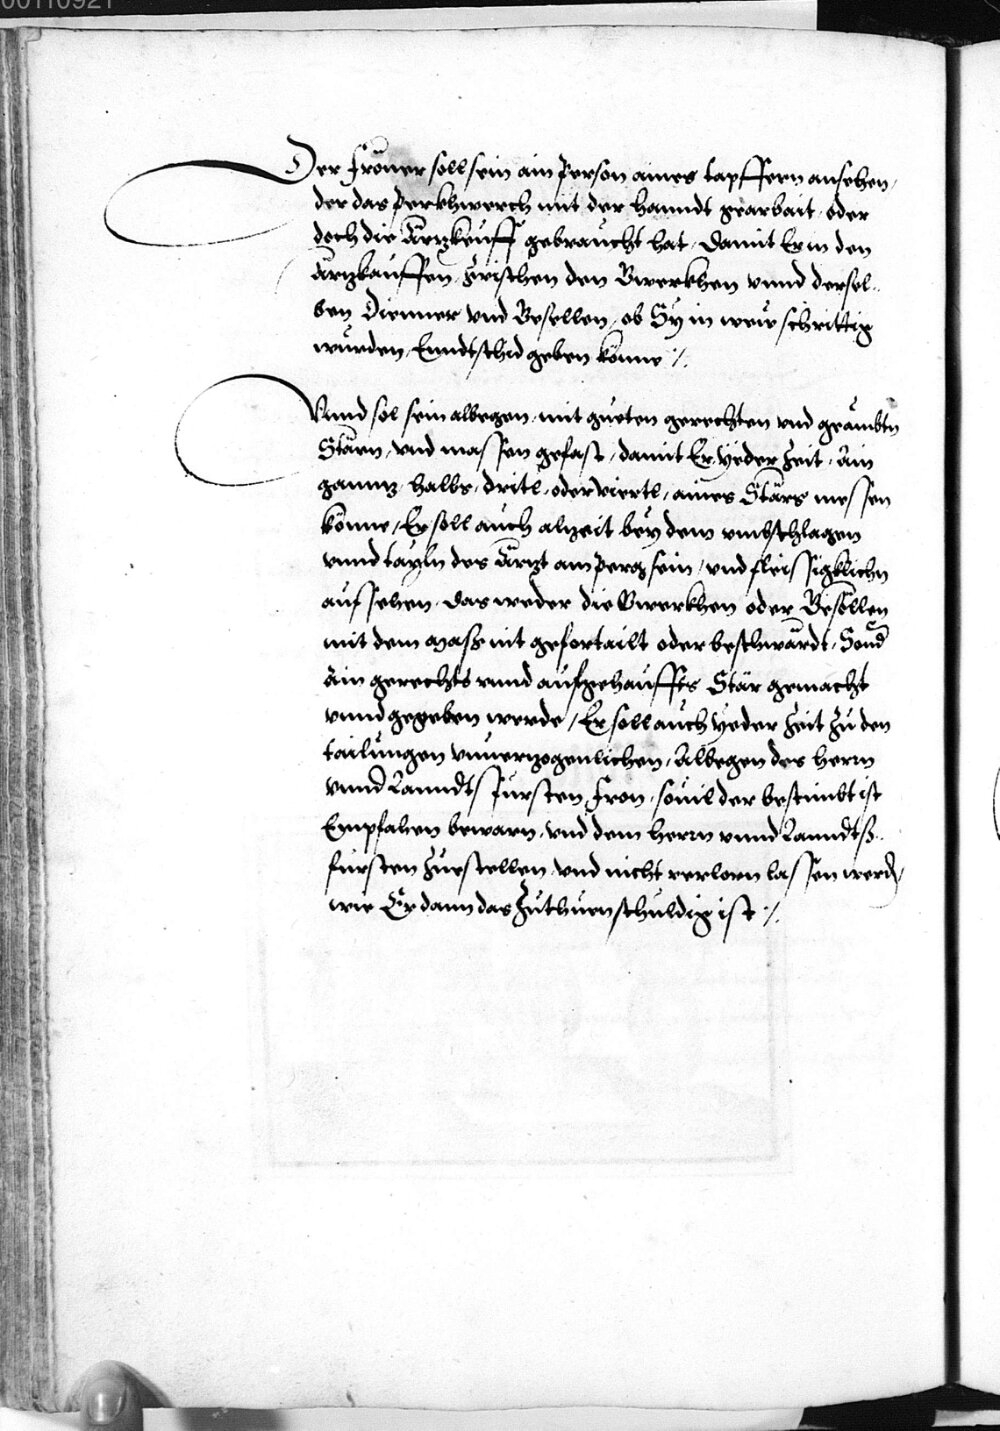 00110921
Der Froner soll sein ain Person aines tapffern ansehen,
der das Perkhwerch mit der Hanndt gearbait, oder
doch die Ärtzkeuff gebraucht hat, Damit Er in den
Ärtzkauffen, Zwischen den Gwerkhen vnnd dersel-
ben Diennern vnd Gesellen, ob Sy in
wurden, Enndtschid geben könne /.
Vnnd sol sein albegen, mit gueten gerechten vnd geämbtn
Stärn, vnd massen gefast, damit Er yeder Zeit, Ain
gannz, halbs, dritl, oder viertl, aines Stärs messen
könne, Er soll auch alzeit bey dem vmbschlagen
vnnd tayln des Ärtzt am Perg sein, vnd fleissigklichn
aufsehen, das weder die Gwerkhen oder Gesöllen
mit dem Mass nit gefortailt oder beschwärdt, Sond
Ain gerechts vnnd aufgehauffts Stär gemacht
vnnd gegeben werde, Er soll auch yeder Zeit Zu den
tailungen vnuerzogenlichen, Albegen des Herrn
vnnd Lanndts fürsten Fron, souil der bestimbt ist
Empfahen bewarn, vnd dem Herrn vnnd Lanndtß-
fürsten Zuestellen vnd nicht verlorn lassen werdn,
wie Er dann das Zuthuen schuldig ist /.